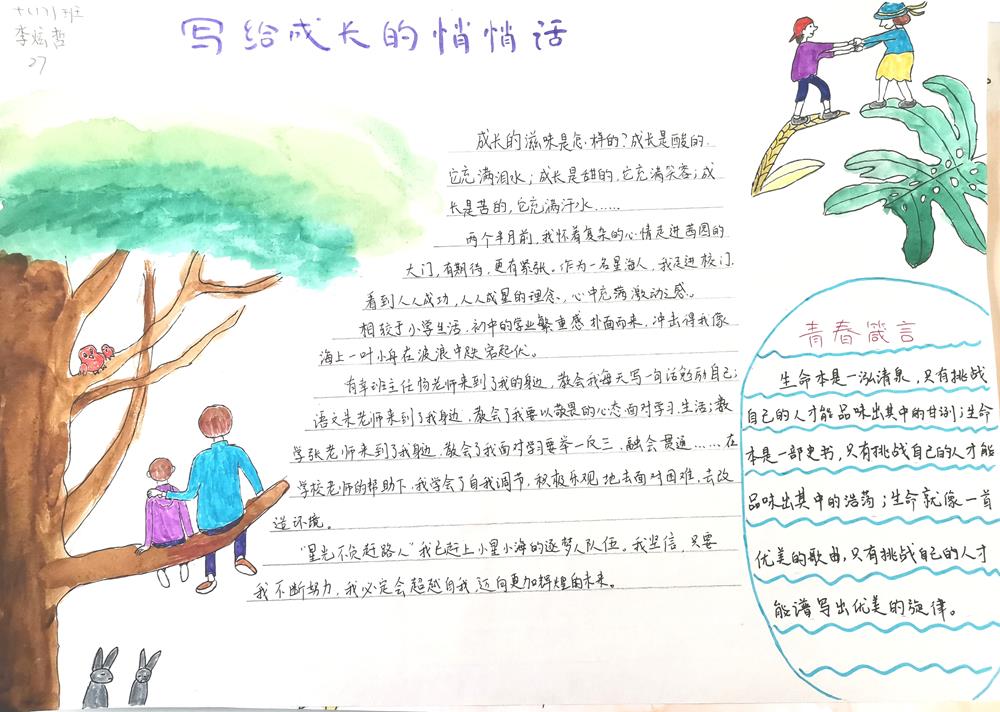 班
李
27
写给成长的悄悄话
成长的滋味是怎样的?成长是酸的,
它充满泪水;成长是甜的,它充满笑容;成
长是苦的,它充满汗水……
两个半月前,我怀着复杂的心情走进茜园的
大门,有期待,更有紧张。作为一名星海人,我走进校门,
看到人人成功,人人成星的理念,心中充满激动之感。
相较于小学生活,初中的学业繁重感扑面而来,冲击得我像
海上一叶小舟在波浪中跌宕起伏。
有年班主任杨老师来到了我的身边,教会我每天写一句话勉励自己;
语文朱老师来到了我身边,教会了我要以敬畏的心态面对学习、生活;数
学张老师来到了我身边,教会了我面对学习要举一反三,融会贯通……在
学校老师的帮助下,我学会了自我调节,积极乐观地去面对困难,去改
造环境。
“星光不负赶路人”我已赶上小星小海的逐梦人队伍。我坚信,只要
我不断努力,我必定会超越自我,迈向更加辉煌的未来。
青春箴言
生命本是一泓清泉,只有挑战
自己的人才能品味出其中的甘冽;生命
本是一部史书,只有挑战自己的人才能
品味出其中的浩荡;生命就像一首
优美的歌曲,只有挑战自己的人才
能谱写出优美的旋律。